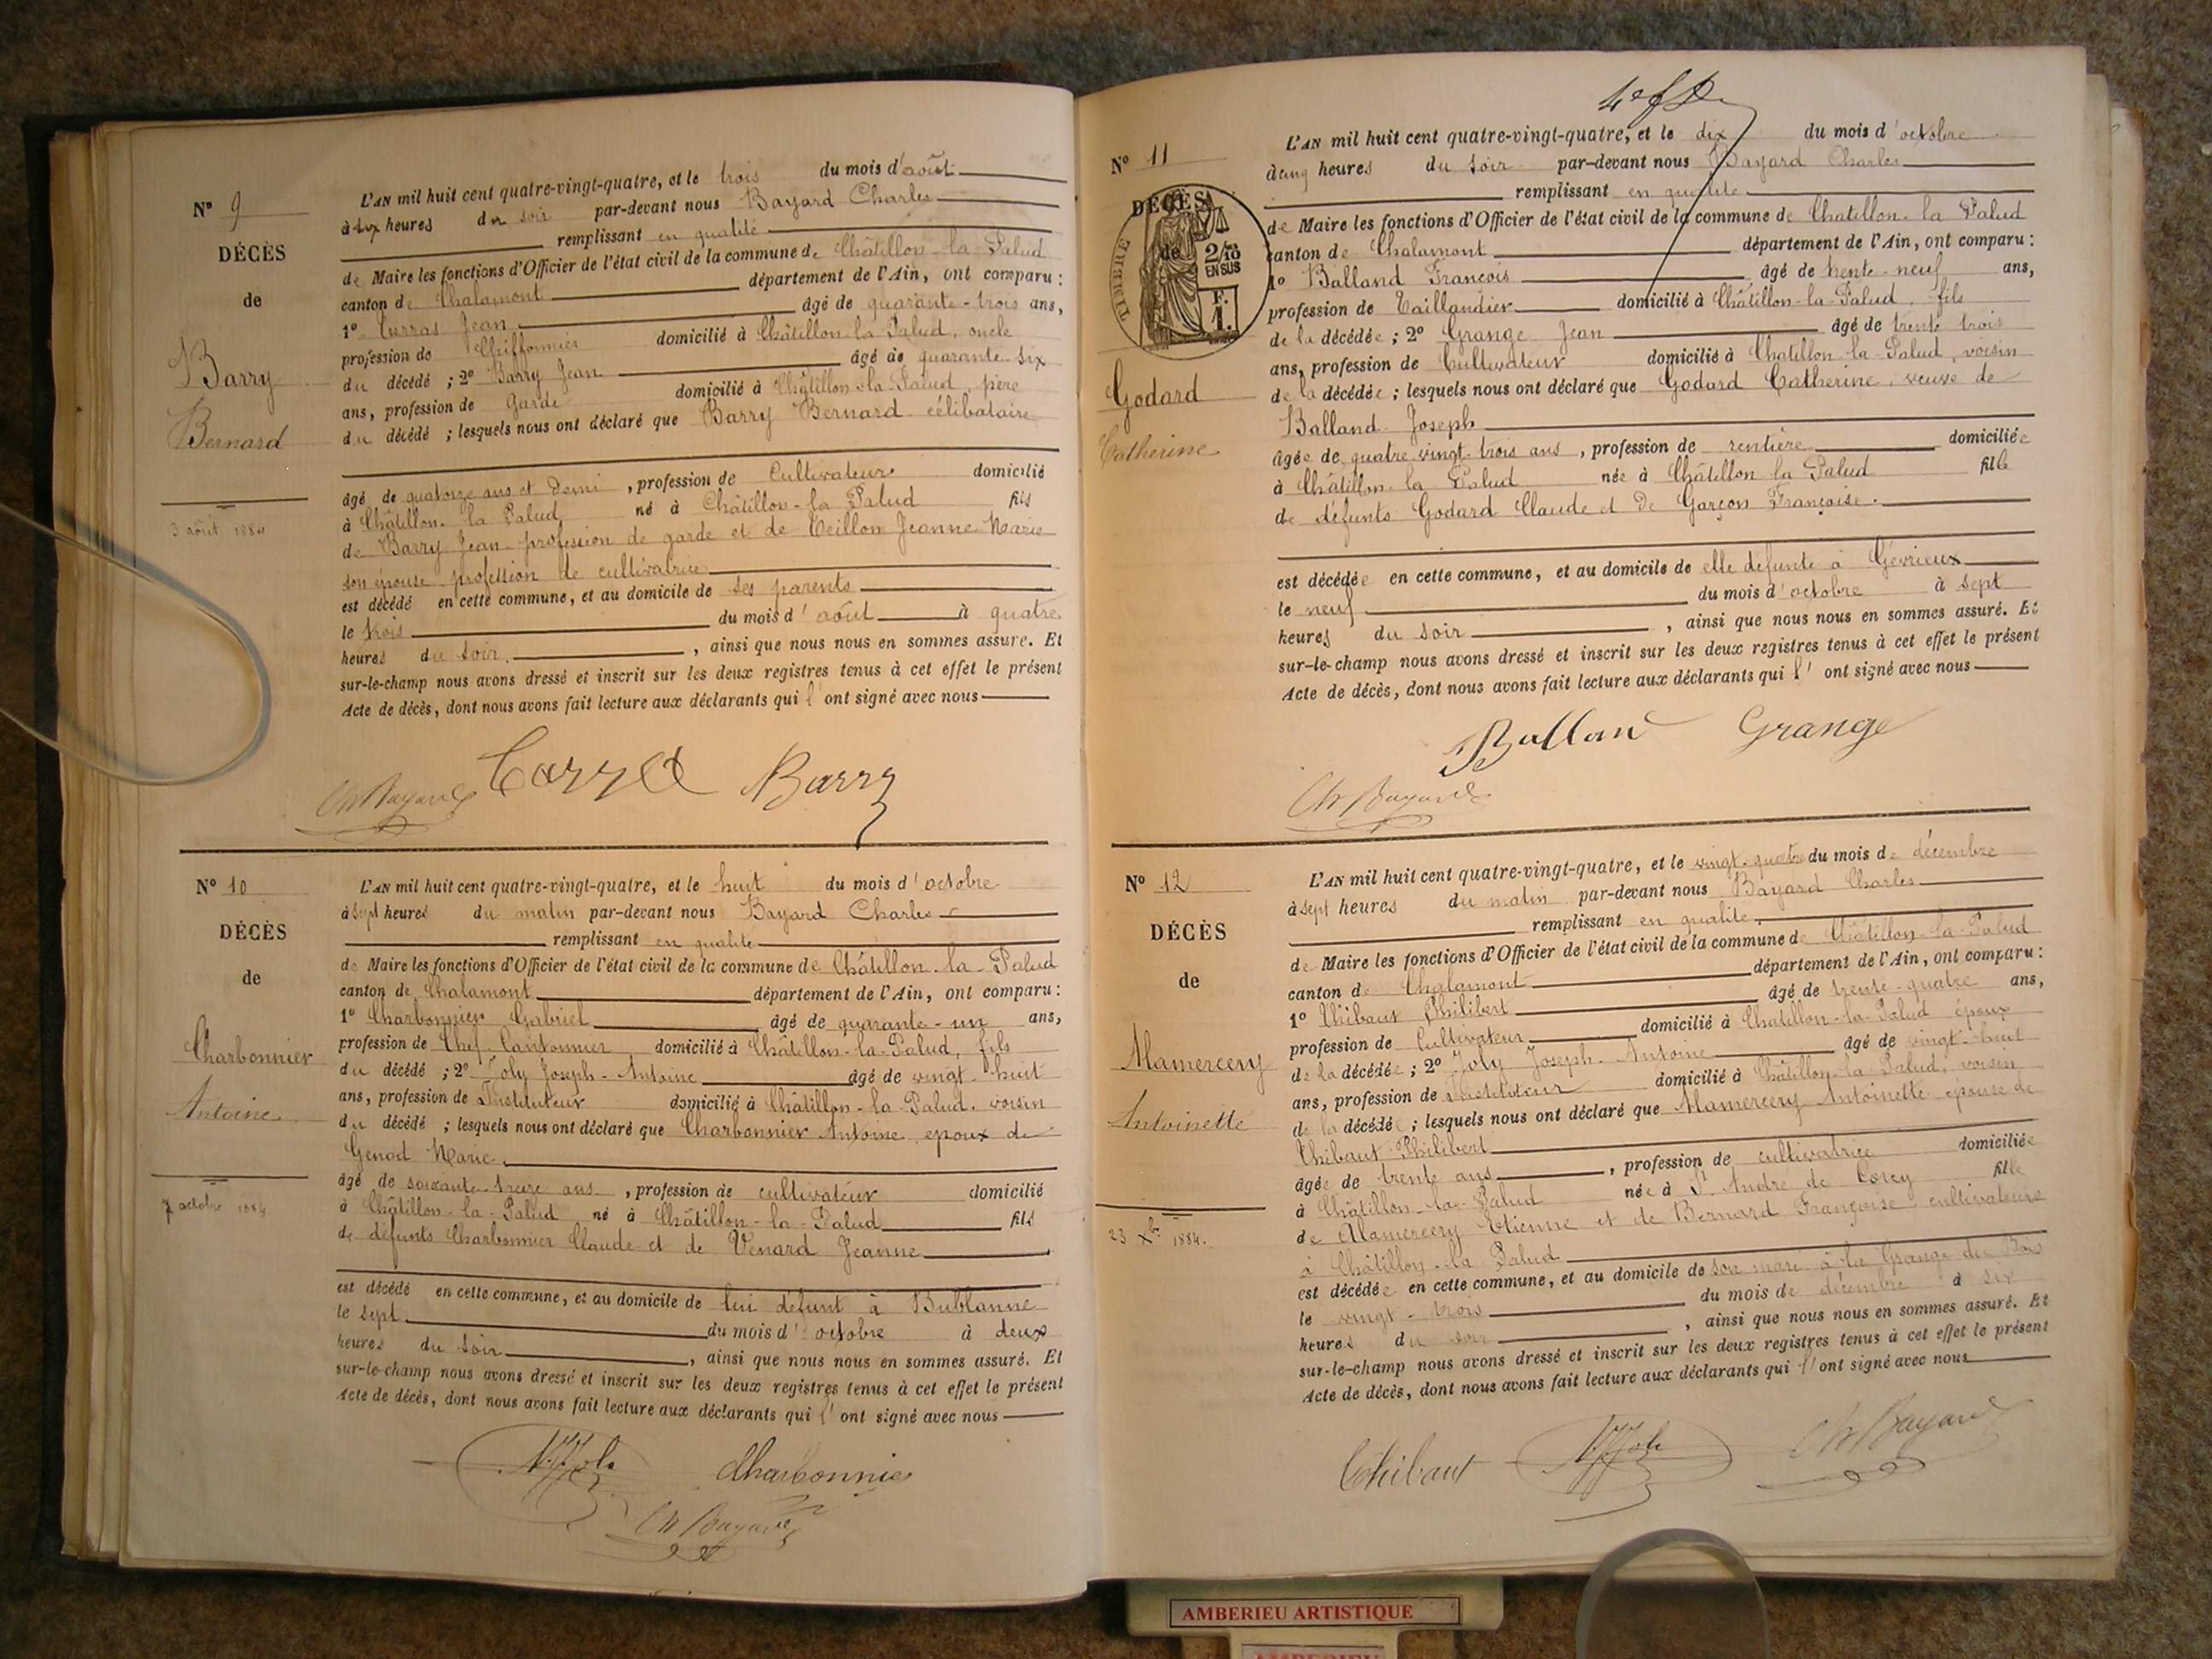 N° 9
DÉCÈS
de
Barry
Bernard
3 août 1884
L'AN mil huit cent quatre-vingt-quatre, et le trois du mois d'août
à six heures du soir par-devant nous Bayard Charles
remplissant en qualité
de Maire les fonctions d'Officier de l'état civil de la commune de Châtillon-la-Palud
canton de Chalamont département de l'Ain, ont comparu :
1° Jean âgé de quarante-trois ans,
profession de Chiffonnier domicilié à Châtillon-la-Palud, oncle
du décédé ; 2° Barry Jean âgé de quarante-six
ans, profession de Garde domicilié à Châtillon-la-Palud, père
du décédé ; lesquels nous ont déclaré que Barry Bernard célibataire
âgé de quatorze ans et demi, profession de Cultivateur domicilié
à Châtillon-la-Palud né à Châtillon-la-Palud fils
de Barry Jean profession de garde et de Teillon Jeanne Marie
son épouse profession de cultivatrice
est décédé en cette commune, et au domicile de ses parents
le trois du mois d'août à quatre
heures du soir, ainsi que nous nous en sommes assuré. Et
sur-le-champ nous avons dressé et inscrit sur les deux registres tenus à cet effet le présent
Acte de décès, dont nous avons fait lecture aux déclarants qui l'ont signé avec nous
Ch Bayard Barry
N° 10
DÉCÈS
de
Charbonnier
Antoine
7 octobre 1884
L'AN mil huit cent quatre-vingt-quatre, et le huit du mois d'octobre
à sept heures du matin par-devant nous Bayard Charles
remplissant en qualité
de Maire les fonctions d'Officier de l'état civil de la commune de Châtillon-la-Palud
canton de Chalamont département de l'Ain, ont comparu :
1° Charbonnier Gabriel âgé de quarante-un ans,
profession de Chef Cantonnier domicilié à Châtillon-la-Palud, fils
du décédé ; 2° Joly Joseph-Antoine âgé de vingt-huit
ans, profession de Instituteur domicilié à Châtillon-la-Palud, voisin
du décédé ; lesquels nous ont déclaré que Charbonnier Antoine, époux de
Genod Marie
âgé de soixante-treize ans, profession de cultivateur domicilié
à Châtillon-la-Palud né à Châtillon-la-Palud fils
de défunts Charbonnier Claude et de Venard Jeanne
est décédé en cette commune, et au domicile de lui défunt à Bublanne
le sept du mois d'octobre à deux
heures du soir, ainsi que nous nous en sommes assuré. Et
sur-le-champ nous avons dressé et inscrit sur les deux registres tenus à cet effet le présent
Acte de décès, dont nous avons fait lecture aux déclarants qui l'ont signé avec nous
Charbonnier
Ch Bayard
N° 11
DÉCÈS
de
TIMBRE
2/10
EN SUS
F.
1.
Godard
Catherine
L'AN mil huit cent quatre-vingt-quatre, et le dix du mois d'octobre
à cinq heures du soir par-devant nous Bayard Charles
remplissant en qualité
de Maire les fonctions d'Officier de l'état civil de la commune de Chatillon-la-Palud
canton de Chalamont département de l'Ain, ont comparu :
1° Balland François âgé de trente-neuf ans,
profession de Taillandier domicilié à Châtillon-la-Palud, fils
de la décédée ; 2° Grange Jean âgé de trente trois
ans, profession de Cultivateur domicilié à Chatillon-la-Palud, voisin
de la décédée ; lesquels nous ont déclaré que Godard Catherine, veuve de
Balland Joseph
âgée de quatre vingt trois ans, profession de rentière domiciliée
à Châtillon-la-Palud née à Châtillon la Palud fille
de défunts Godard Claude et De Garçon Françoise
est décédée en cette commune, et au domicile de elle défunte à Gévrieux
le neuf du mois d'octobre à sept
heures du soir, ainsi que nous nous en sommes assuré. Et
sur-le-champ nous avons dressé et inscrit sur les deux registres tenus à cet effet le présent
Acte de décès, dont nous avons fait lecture aux déclarants qui l'ont signé avec nous
Ballan Grange
Ch Bayard
N° 12
DÉCÈS
de
Alamercery
Antoinette
23 Xbre 1884.
L'AN mil huit cent quatre-vingt-quatre, et le vingt-quatre du mois de décembre
à sept heures du matin par-devant nous Bayard Charles
remplissant en qualité
de Maire les fonctions d'Officier de l'état civil de la commune de Châtillon-la-Palud
canton de Chalamont département de l'Ain, ont comparu :
1° Thibaut Philibert âgé de trente-quatre ans,
profession de Cultivateur domicilié à Chatillon-la-Palud époux
de la décédée ; 2° Joly Joseph-Antoine âgé de vingt-huit
ans, profession de Instituteur domicilié à Châtillon-la-Palud, voisin
de la décédée ; lesquels nous ont déclaré que Alamercery Antoinette épouse de
Thibaut Philibert
âgée de trente ans, profession de cultivatrice domiciliée
à Châtillon-la-Palud née à St André de Corcy fille
de Alamercery Etienne et de Bernard Françoise cultivateurs
à Châtillon-la-Palud
est décédée en cette commune, et au domicile de son mari à la Grange du Bois
le vingt-trois du mois de décembre à six
heures du soir, ainsi que nous nous en sommes assuré. Et
sur-le-champ nous avons dressé et inscrit sur les deux registres tenus à cet effet le présent
Acte de décès, dont nous avons fait lecture aux déclarants qui l'ont signé avec nous
Thibaut Ch Bayard
AMBERIEU ARTISTIQUE
AMBERIEU